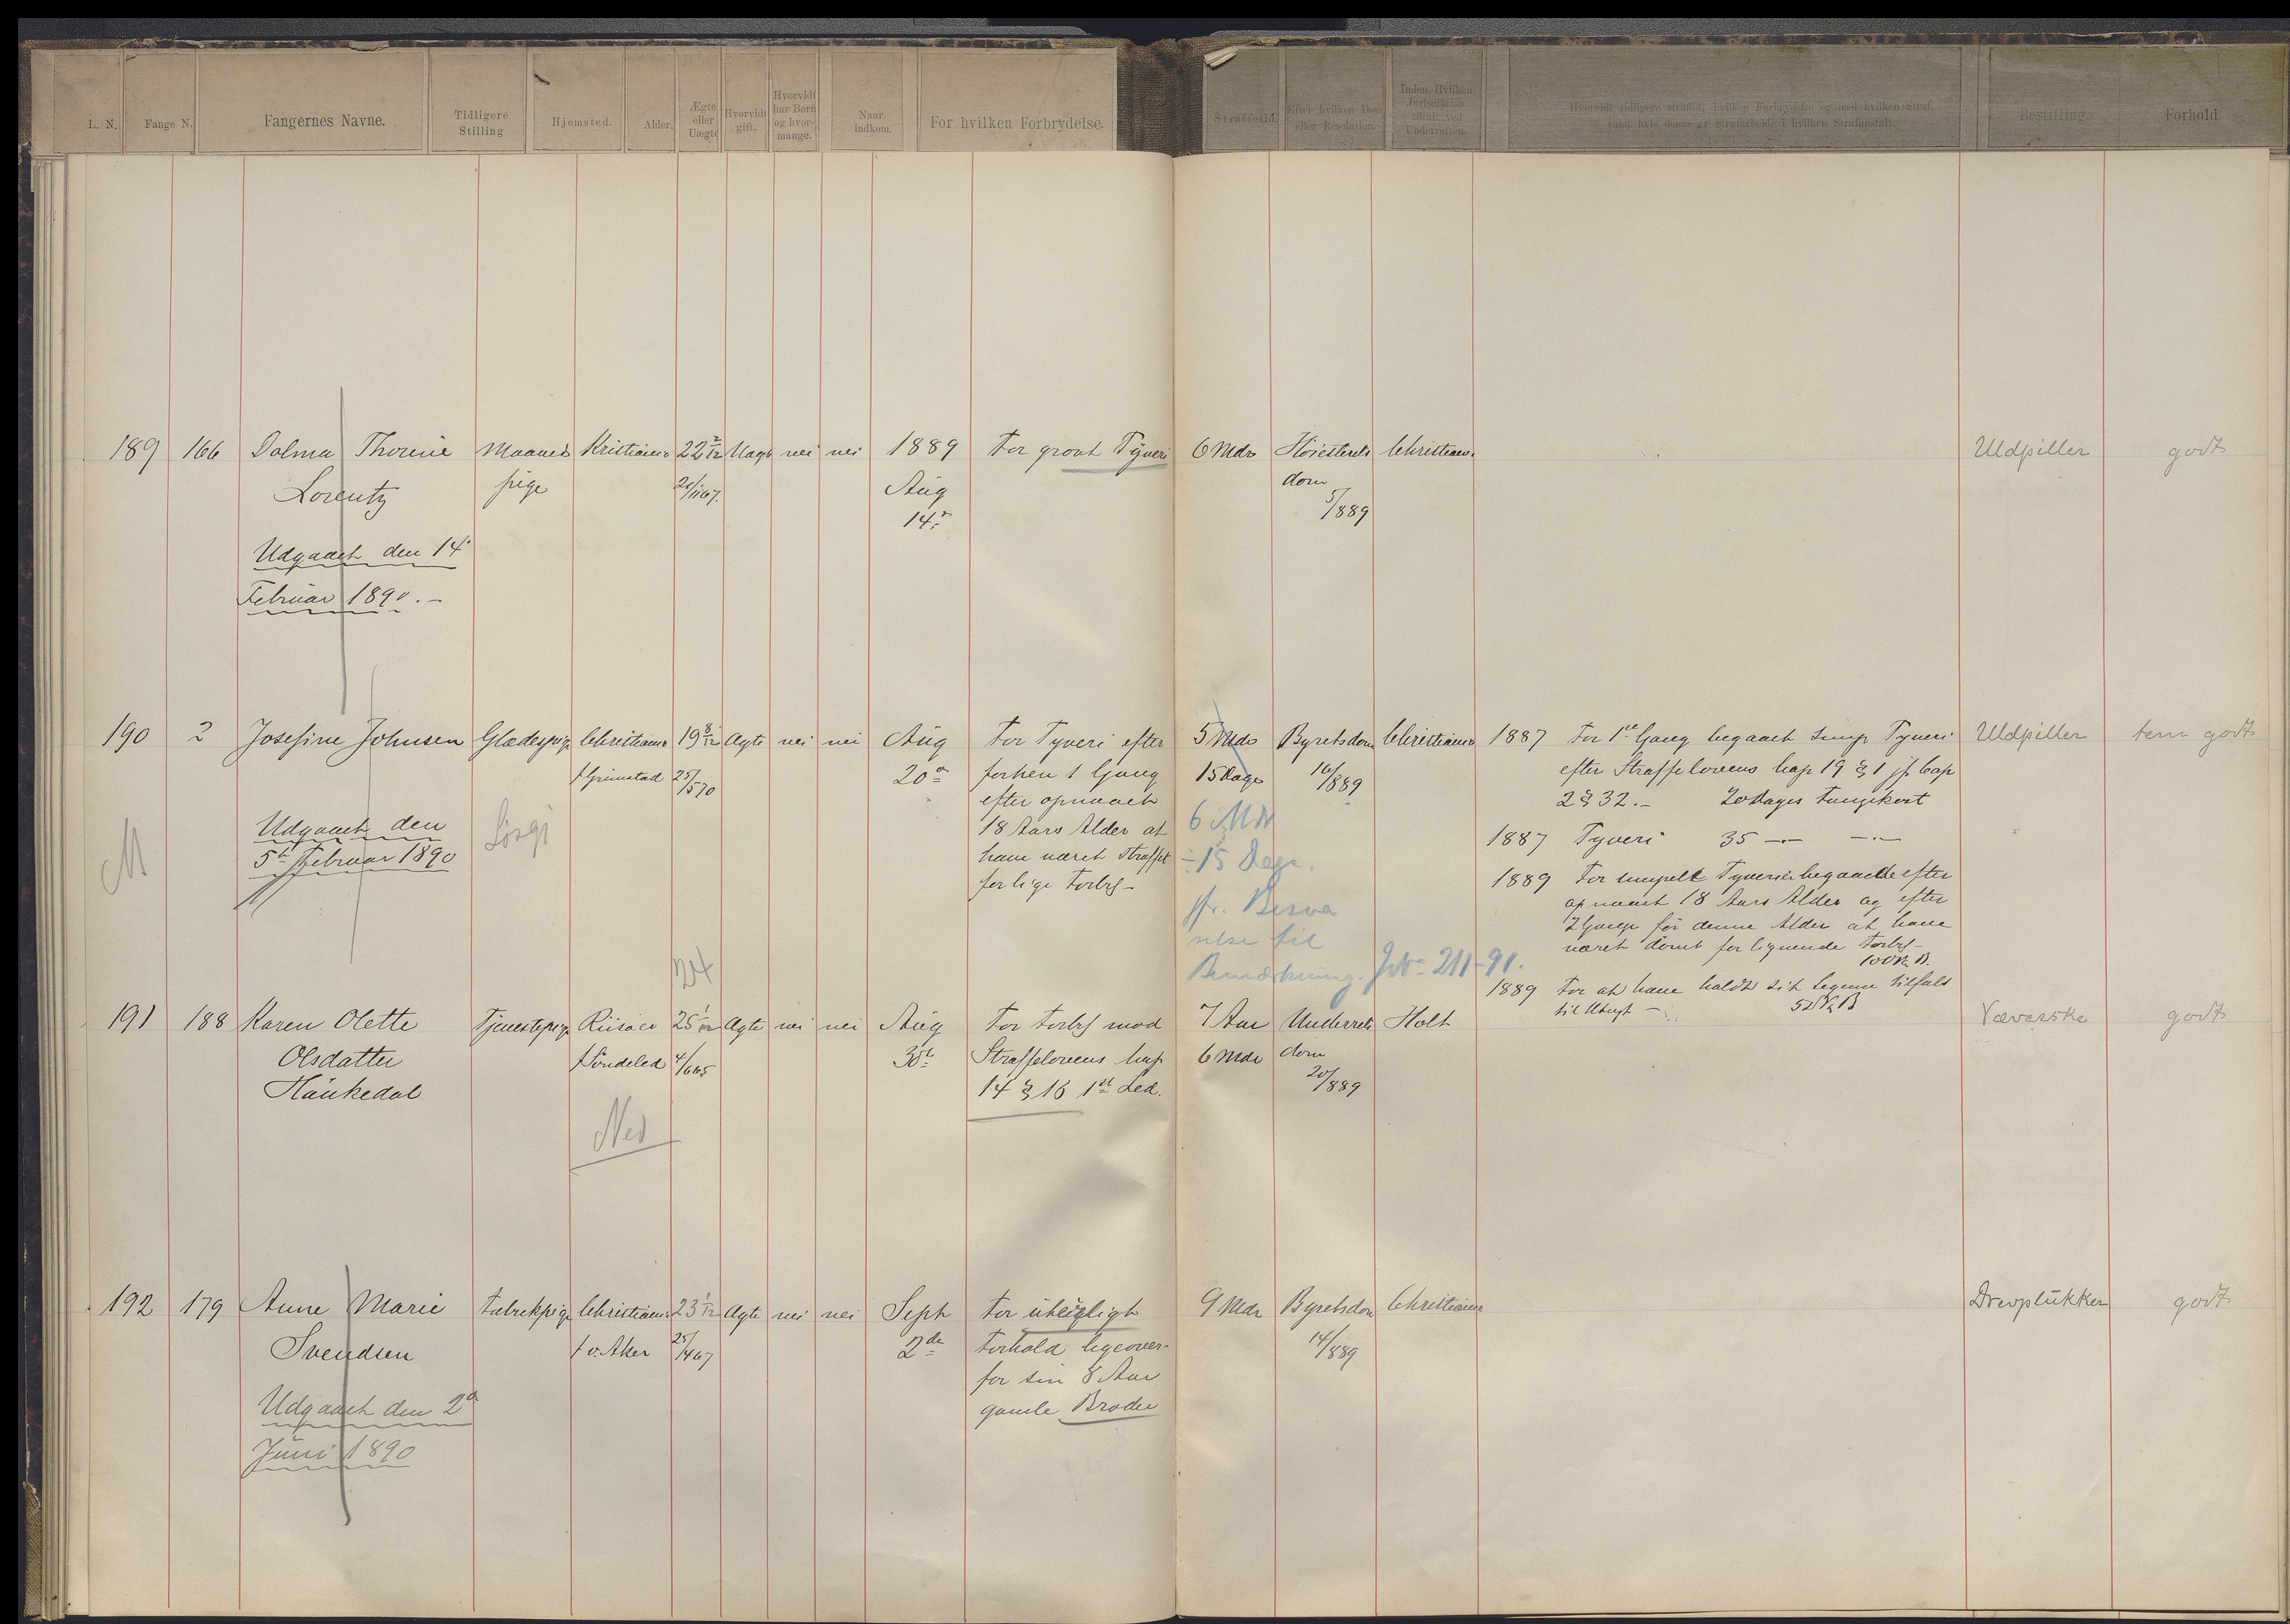 L. N. Fange N. Fangernes Navne. Tidligere Stilling Hjemsted. Alder. Ægte eller Uægte Hvorvidt gift. Hvorvidt har Børn og hvormange. Naar indkom. For hvilken Forbrydelse. Straffetid. Efter hvilken Dom eller Resolution. Inden Hvilken Jurisdiktion tiltalt ved Underretten. Hvorvidt tidligere straffet, hvilken Forbrydelse og med hvilken Straf, samt hvis denne er Strafarbeide i hvilken Strafanstalt. Bestilling Forhold
189 166 Dolma Thorine Maaneds Kristiania 22 2/12 Uægte nei nei 1889 For grovt Tyveri 6 Mdr Høiesterets Christiania Uldpiller godt
Lorentz pige 20/1167. Aug dom
14. 5/889
Udgaaet den 14
Februar 1890.-
190 2 Josefine Johnsen Glædespige Christiania 19 8/12 Ægte nei nei Aug For Tyveri efter 5 Mdr Byretsdom Christiania 1887 For 1ste Gang begaaet simp Tyveri Uldpiller tem godt
f Grimstad 25/570 20 forhen 1 Gang 15 Dage 16/889 efter Straffelovens Kap 19 § 1 jf Cap
efter opnaaet 2 § 32.- 20 Dages Fangekost
Udgaaet den 18 Aars Alder at 6 Mdr 1887 Tyveri 35 —"— —"—
5te Februar 1890 have været straffet ÷ 15 Dage. 1889 For simpelt Tyveri begaaet efter
M for lige Forbr- opnaaet 18 Aars Alder og efter
jfr. Besva 2 Gange før denne Alder at have
relse til været dømt for lignende Forbr-
Bemærkning. JNo 211-91. 100 Kr B.
1889 For at have holdt sit Legeme tilfals
til Utugt - 52 Kr B
191 188 Karen Olette Tjenestepige Risøer 25 1/12 Ægte nei nei Aug For Forbr mod 7 Aar Underrets Holt Væverske godt
Olsdatter f Søndeled 4/665 30te Straffelovens Kap 6 Mdr dom
Haukedal 14 § 16 1ste Led. 20/889
Ned
192 179 Anne Marie Fabrikpige Christiania 23 1/12 Ægte nei nei Sept For uteeligt 9 Mdr Byretsdom Christiania Drevplukker godt
Svendsen f v. Aker 25/467 2de Forhold ligeover- 14/889
for sin 8 Aar
Udgaaet den 2 gamle Broder
Juni 1890